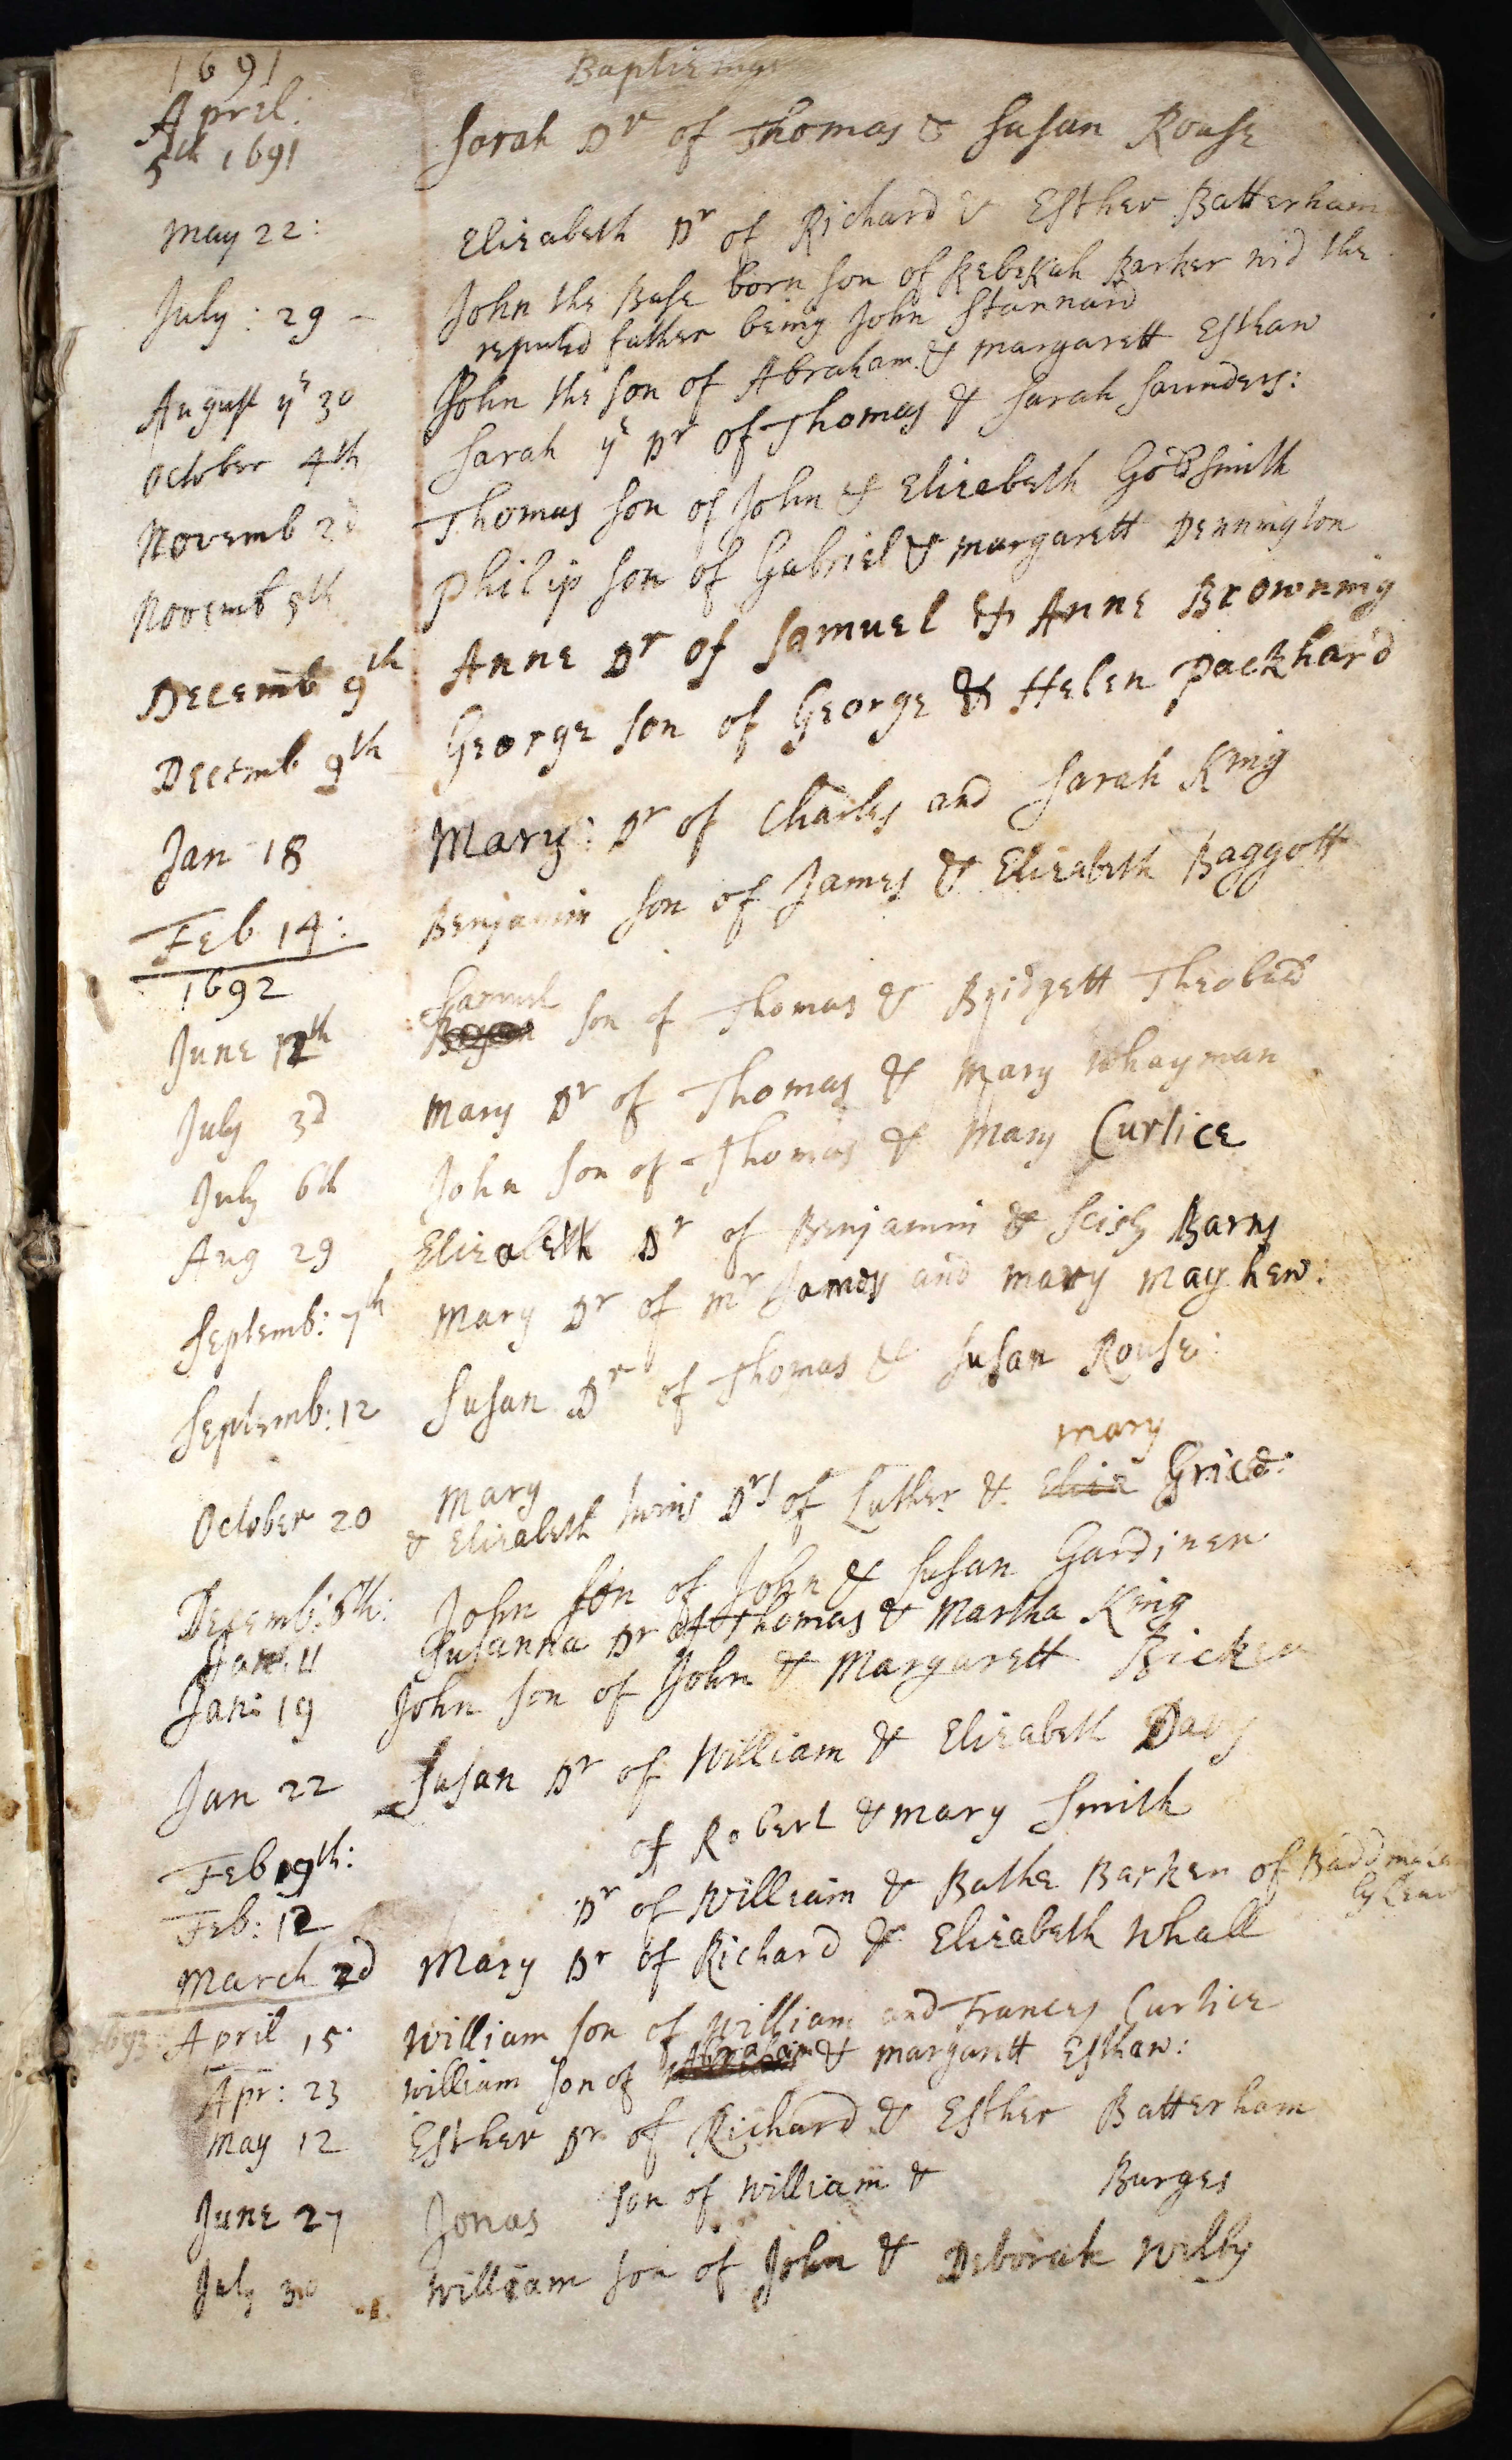 1691
Baptizings
April:
5th 1691 Sarah Dr of Thomas & Susan Rouse
May 22: Elizabeth Dr of Richard & Esther Batterham
July: 29 - John the Base born son of Rebekah Barker wid the
reputed father being John Stannard
August ye 30 John the son of Abraham & Margarett Esthaw
October 4th Sarah ye Dr of Thomas & Sarah Saunders:
Novemb 2d Thomas son of John & Elizabeth Goldsmith
Novemb 5th Philip son of Gabriel & Margarett Dennington
Decemb 9th Anne Dr of Samuel & Anne Browning
Decemb 9th George son of George & Helen Packhard
Jan 18 Mary: Dr of Charles and Sarah King
Feb 14: Benjamin son of James & Elizabeth Baggott
1692
Samuel
June 12th son of Thomas & Bridgett Theobald
July 3d Mary Dr of Thomas & Mary Whayman
July 6th John son of Thomas & Mary Curtice
Aug 29 Elizabeth Dr of Benjamin & Scisly Barns
Septemb: 7th Mary Dr of Mr James and Mary Mayhew:
Septemb: 12 Susan Dr of Thomas & Susan Rouse:
Mary mary
October 20 & Elizabeth twins Drs of Luther & Eliza Grice:
Decemb: 8th: John son of John & Susan Gardiner
Jan: 11 Susanna Dr of Thomas & Martha King
Jan: 19 John son of John & Margarett Bicker
Jan 22 Susan Dr of William & Elizabeth Davy
Feb 19th: of Robert & Mary Smith
Feb: 12 Dr of William & Bathe Barker of
March 2d Mary Dr of Richard & Elizabeth Whall
1693: April 15 William son of William and Frances Curtice
Apr: 23 William son of Abraham & Margarett Esthaw:
May 12 Esther Dr of Richard & Esther Batterham
June 27 Jonas son of William & Burges
July 30 William son of John & Deborah Wilby